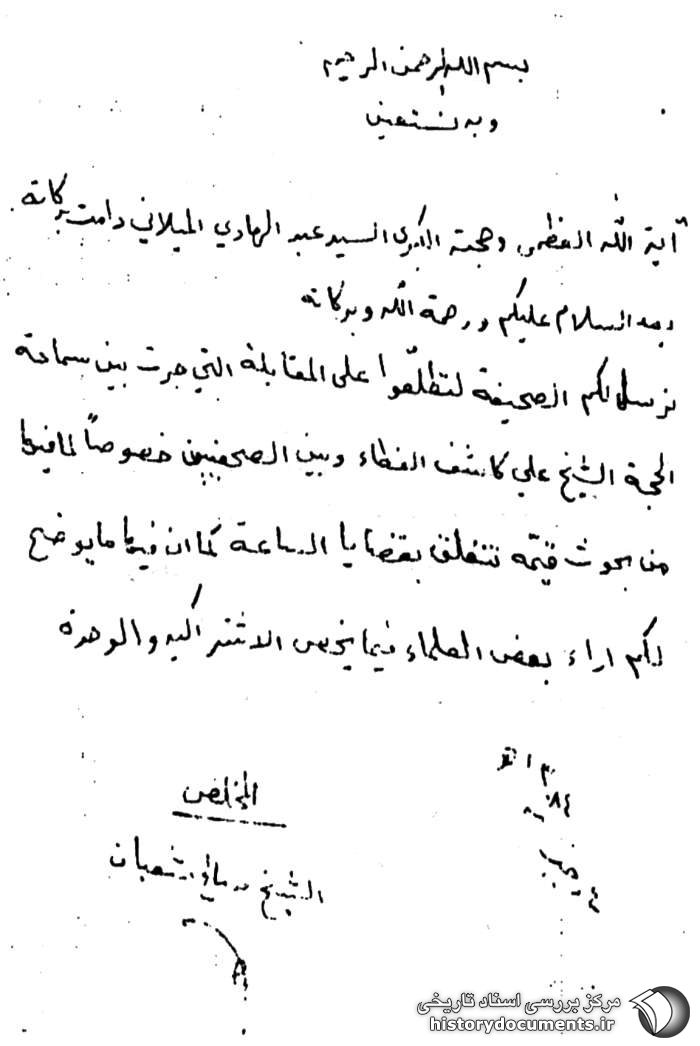 بسم الله الرحمن الرحيم
وبه نستعين
آية الله العظمى وحجته الكبرى السيد عبد الهادي الميلاني دامت بركاته
بعد السلام عليكم ورحمة الله وبركاته
نرسل لكم الصحيفة لتطلّعوا على المقابلة التي جرت بين سماحة
الحجة الشيخ علي كاشف الغطاء وبين الصحفيين خصوصاً لما فيها
من بحوث قيّمه تتعلق بقضايا الساعة كما ان فيها ما يوضح
لكم اراء بعض العلماء فيما يخص الاشتراكيه والوحدة
المخلص
الشيخ شعبان
٨٤
مرکز بررسی اسناد تاریخی
historydocuments.ir